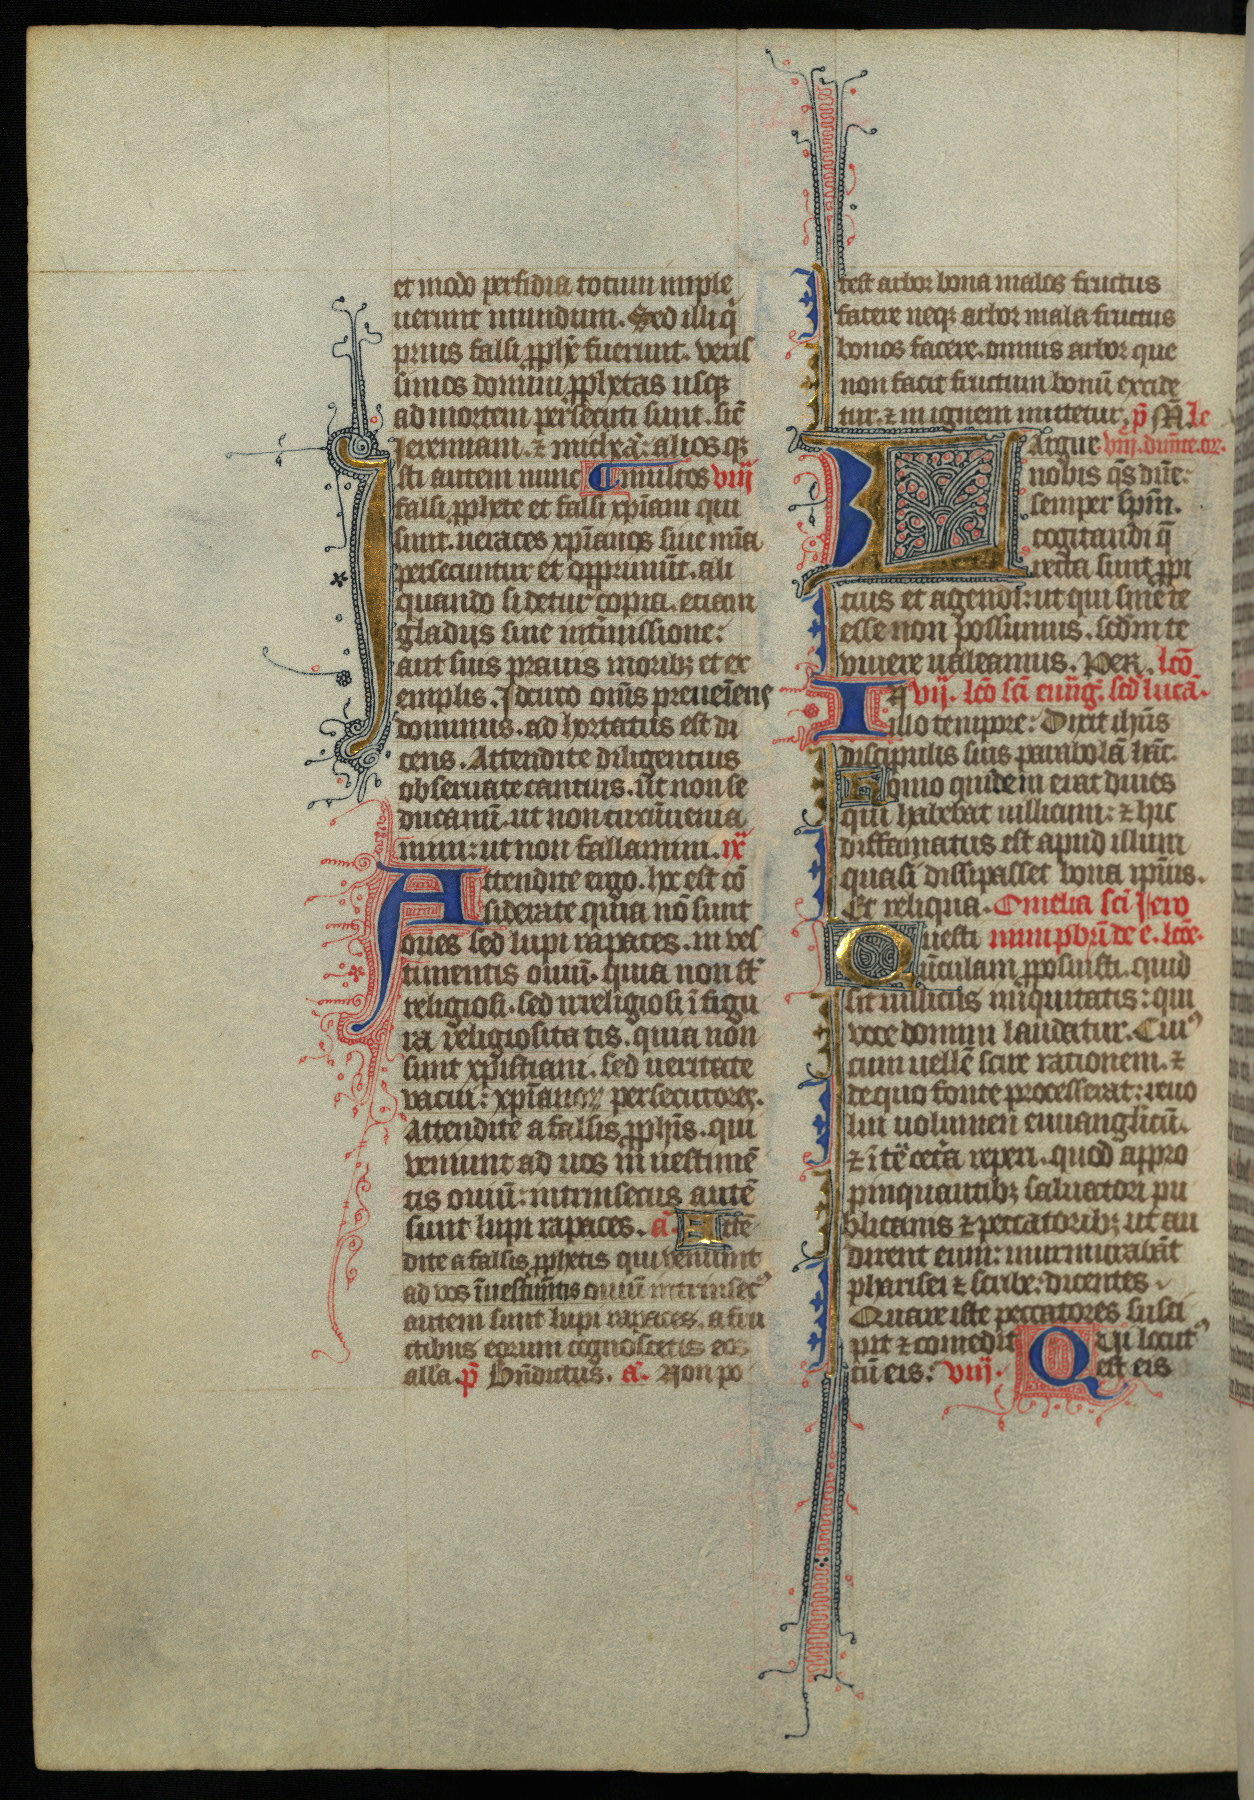 et modo perfidia totum imple
uerunt mundum. Sed illi q̇
prius falsi ꝓphe͛ fuerunt. veris
simos domini ꝓphetas usqꝫ
ad mortem persecuti sunt. sic̄
Jeremiam. ⁊ micheā: alios qꝫ
Isti autem nunc multos viij
falsi ꝓphete et falsi xp̄iani qui
sunt. ueraces xp̄ianos siue mīa
persecuntur et opprimūt. ali
quando si detur copia. etiam
gladijs sine int̄missione:
aut suis prauis moribꝫ et ex
emplis. Jdcirco om̄is preueiens
dominus. ad hortatus est di
cens. Attendite diligentius
obseruate cautius. ut non se
ducamī. ut non circūuenia
mini: ut non fallamini. ix
Attendite ergo. hoc est cō
siderate quia nō sunt
oues sed lupi rapaces. in ves
timentis ouiū. quia non st̄
religiosi. sed irreligiosi ī figu
ra religiosita tis. quia non
sunt xpistiani. sed ueritate
vacui: xp̄ianoꝝ persecutores.
Attendite a falsis ꝓphīs. qui
veniunt ad uos in uestimē
tis ouiū: intrinsecus autē
sunt lupi rapaces. a. Atte
dite a falsis ꝓphetis qui veniunt
ad vos ī uestimētis ouiū intrinsecꝰ
autem sunt lupi rapaces. a fru
ctibus eorum cognoscetis eos
alla. p̄ Bn̄dictus. a. Non po
test arbor bona malos fructus
facere neqꝫ arbor mala fructus
bonos facere. omnis arbor que
non facit fructum bonū excide
tur. ⁊ in ignem mittetur. p̄ M. Ie
Largire viij. dum̄te. or.
nobis q̄s dn̄e:
semper spm̄.
cogitandi q̄
recta sunt ꝓpi
cius et agendi: ut qui sine te
esse non possumus. scdm te
viuere ualeamus. Per. lcō
In vij. lcō sci euūg. scd lucā.
illo tempore: Dixit ihūs
discipulis suis parabolā hāc.
Homo quidem erat diues
qui habebat uillicum: ⁊ hic
diffamatus est apud illum
quasi dissipasset bona ipīus.
Et reliqua. Omelia sci Jero
Questi nimi pbrī de e. lcōe.
ūculam ꝓposuisti. quid
sit uillicus iniquitatis: qui
voce domini laudatur. Cuiꝰ
cum uellē scire rationem. ⁊
de quo fonte processerat: reuo
lui uolumen euuanglicū.
⁊ ī tē cetā reperi. quod appro
pinquantibꝫ saluatori pu
blicanis ⁊ peccatoribꝫ ut au
dirent eum: murmurabāt
pharisei ⁊ scribe: dicentes.
Quare iste peccatores susci
pit ⁊ comedit Qui locutꝰ
cū eis: viij. est eis